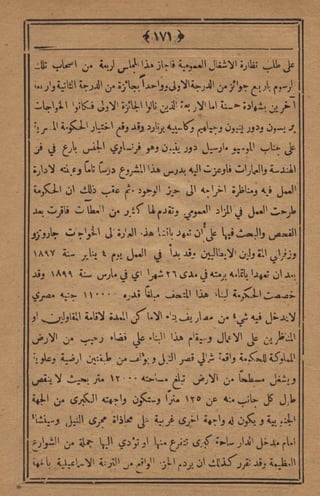 ﴿ ١٧١ ﴾
على طلب نظارة الاشغال العمومية فاجاز هذا المجلس اربعة من اصحاب تلك
الرسوم باربع جوائز من الدرجة الاولى وواحداً بجائزة من الدرجة الثانية واربعة
آخرين بشهادة حسنة اما الاربعة الذين نالوا الجائزة الاولى فكانوا الخواجات
ودورنيون وكاسييه برنارد وقد وقع اختيار الحكومة المصرية
على جناب الموسيو مارسيل دورنيون وهو فرنساوي الجنس بارع في فن
الهندسة والعمارات فاوعزت اليه بدرس هذا المشروع درساً تاماً وعينته لادارة
العمل فيه ومناظرة اخراجه الى حيز الوجود. ثم عقب ذلك ان الحكومة
طرحت العمل في المزاد العمومي وتقدم لها كثير من العطآت فاقرت بعد
الفحص والبحث فيها على ان تعهد باتمام هذه العمارة الى الخواجات جاروزو
وزفراني المقاولين الايطاليين وقد بدأ في العمل يوم ٤ يناير سنة ١٨٩٧
بعد ان تعهد باتمامه برمته في مدى ٢٦ شهرا اي في مارس سنة ١٨٩٩ وقد
خصصت الحكومة لبناء هذا المتحف مبلغاً قدره ١١٠٠٠٠ جنيه مصري
لا يدخل فيه شيء من مصاريف بناء الاماكن المعدة لاقامة المقاولين او
المناظرين على الاعمال وسيقام هذا البناء على فضاء رحيب من الارض
المملوكة للحكومة واقعة شرقي قصر النيل ويؤلف من طبقتين ارضية وعلوية
ويشغل مسطحاً من الارض تبلغ مساحته ١٢٠٠٠ متر بحيث لا ينقص
طول كل جانب منه عن ١٢٥ متراً وستكون واجهته الكبرى من الجهة
الجنوبية ويكون له واجهة اخرى غربية على محاذاة مجرى النيل وسينشأ
امام مدخل الدار ساحة كبرى تتفرع منها او تؤدي اليها جملة من الشوارع
العظيمة وقد تقرر كذلك ان يردم الجزء الواقع من الترعة الاسماعيلية بالجهة